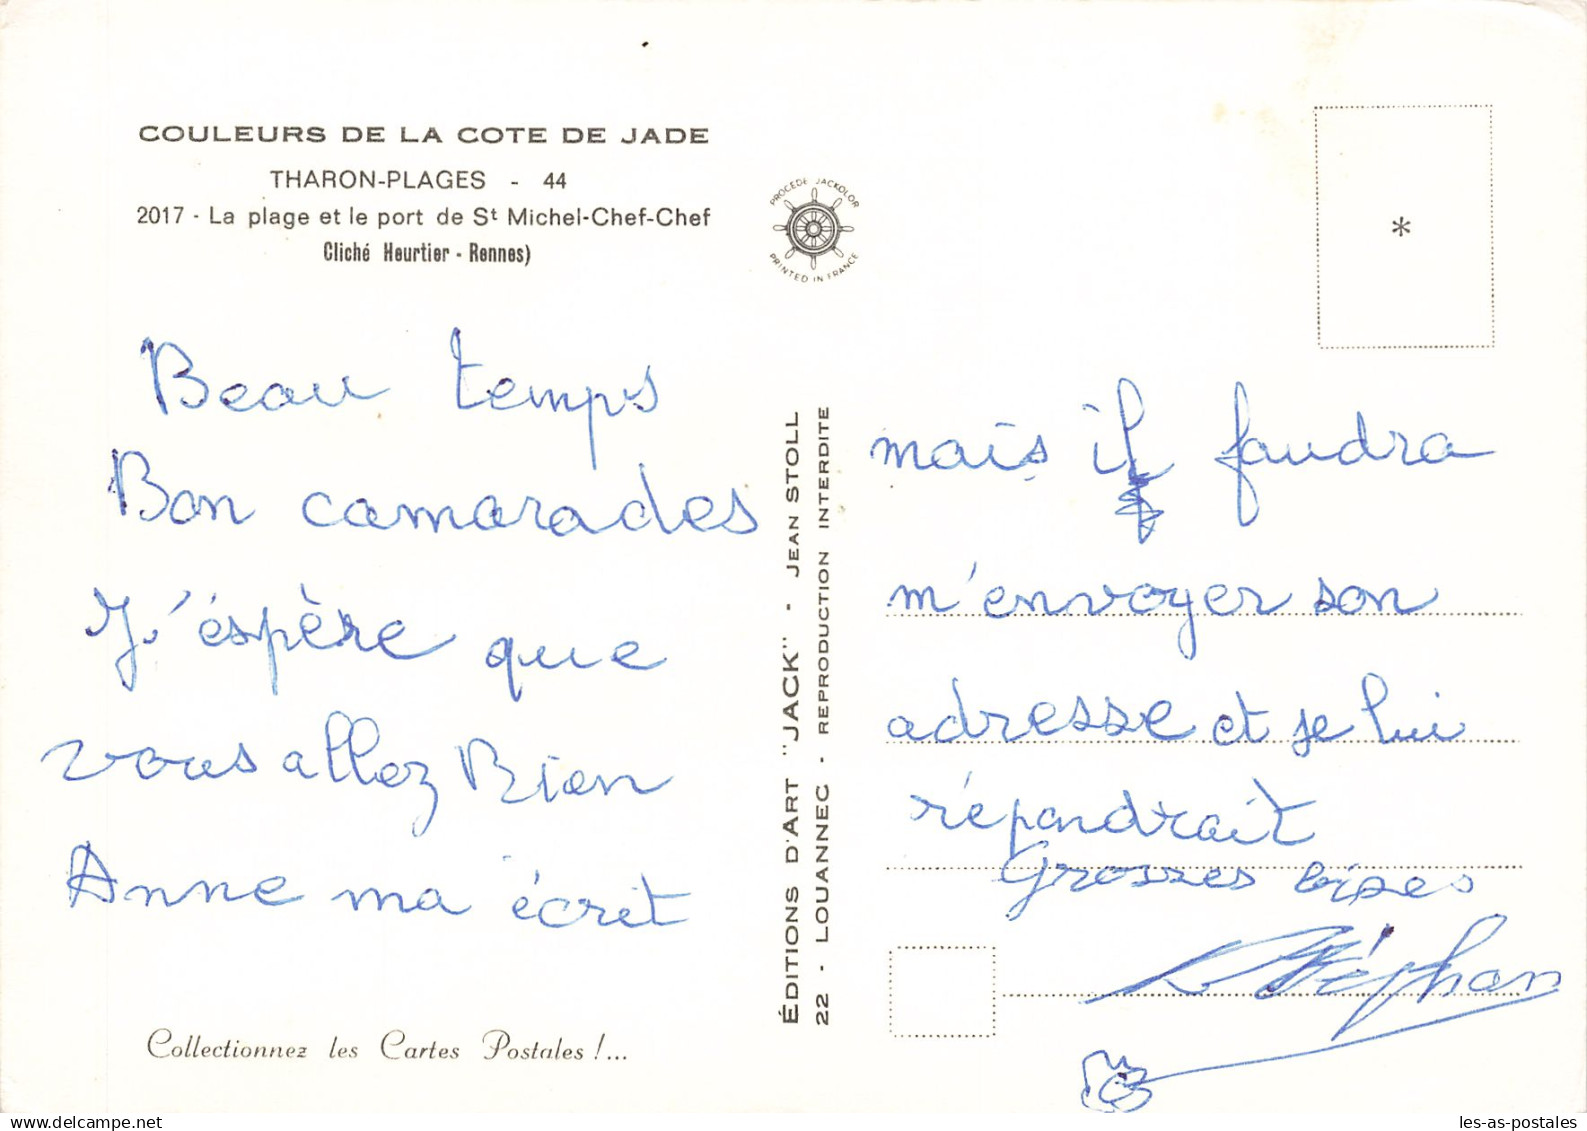 COULEURS DE LA COTE DE JADE
THARON-PLAGES - 44
2017 - La plage et le port de St Michel-Chef-Chef
Cliché Heurtier - Rennes)
PROCÉDÉ JACKOLOR
PRINTED IN FRANCE
*
Beau temps
Bon camarades
J'éspère que
vous allez Bien
Anne ma écrit
Collectionnez les Cartes Postales !...
ÉDITIONS D'ART "JACK" - JEAN STOLL
22 - LOUANNEC - REPRODUCTION INTERDITE
mais il faudra
m'envoyer son
adresse et je lui
répondrait
Grosses bises
Stéphan
les-as-postales